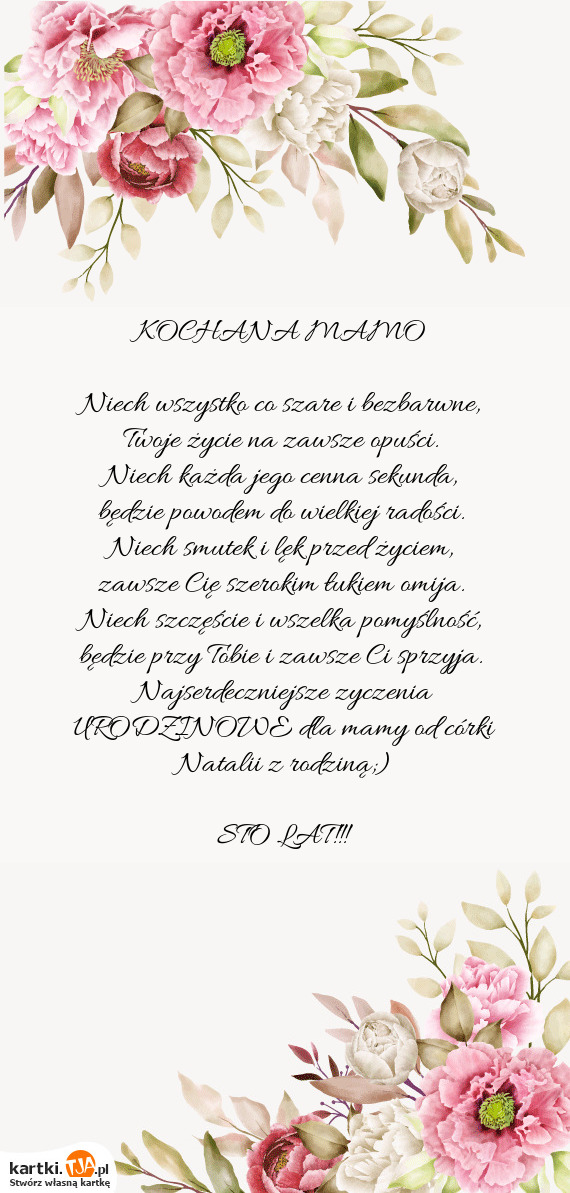 KOCHANA MAMO
Niech wszystko co szare i bezbarwne,
Twoje życie na zawsze opuści.
Niech każda jego cenna sekunda,
będzie powodem do wielkiej radości.
Niech smutek i lęk przed życiem,
zawsze Cię szerokim łukiem omija.
Niech szczęście i wszelka pomyślność,
będzie przy Tobie i zawsze Ci sprzyja.
Najserdeczniejsze zyczenia
URODZINOWE dla mamy od córki
Natalii z rodziną;)
STO LAT!!!
kartki.TJA.pl
Stwórz własną kartkę